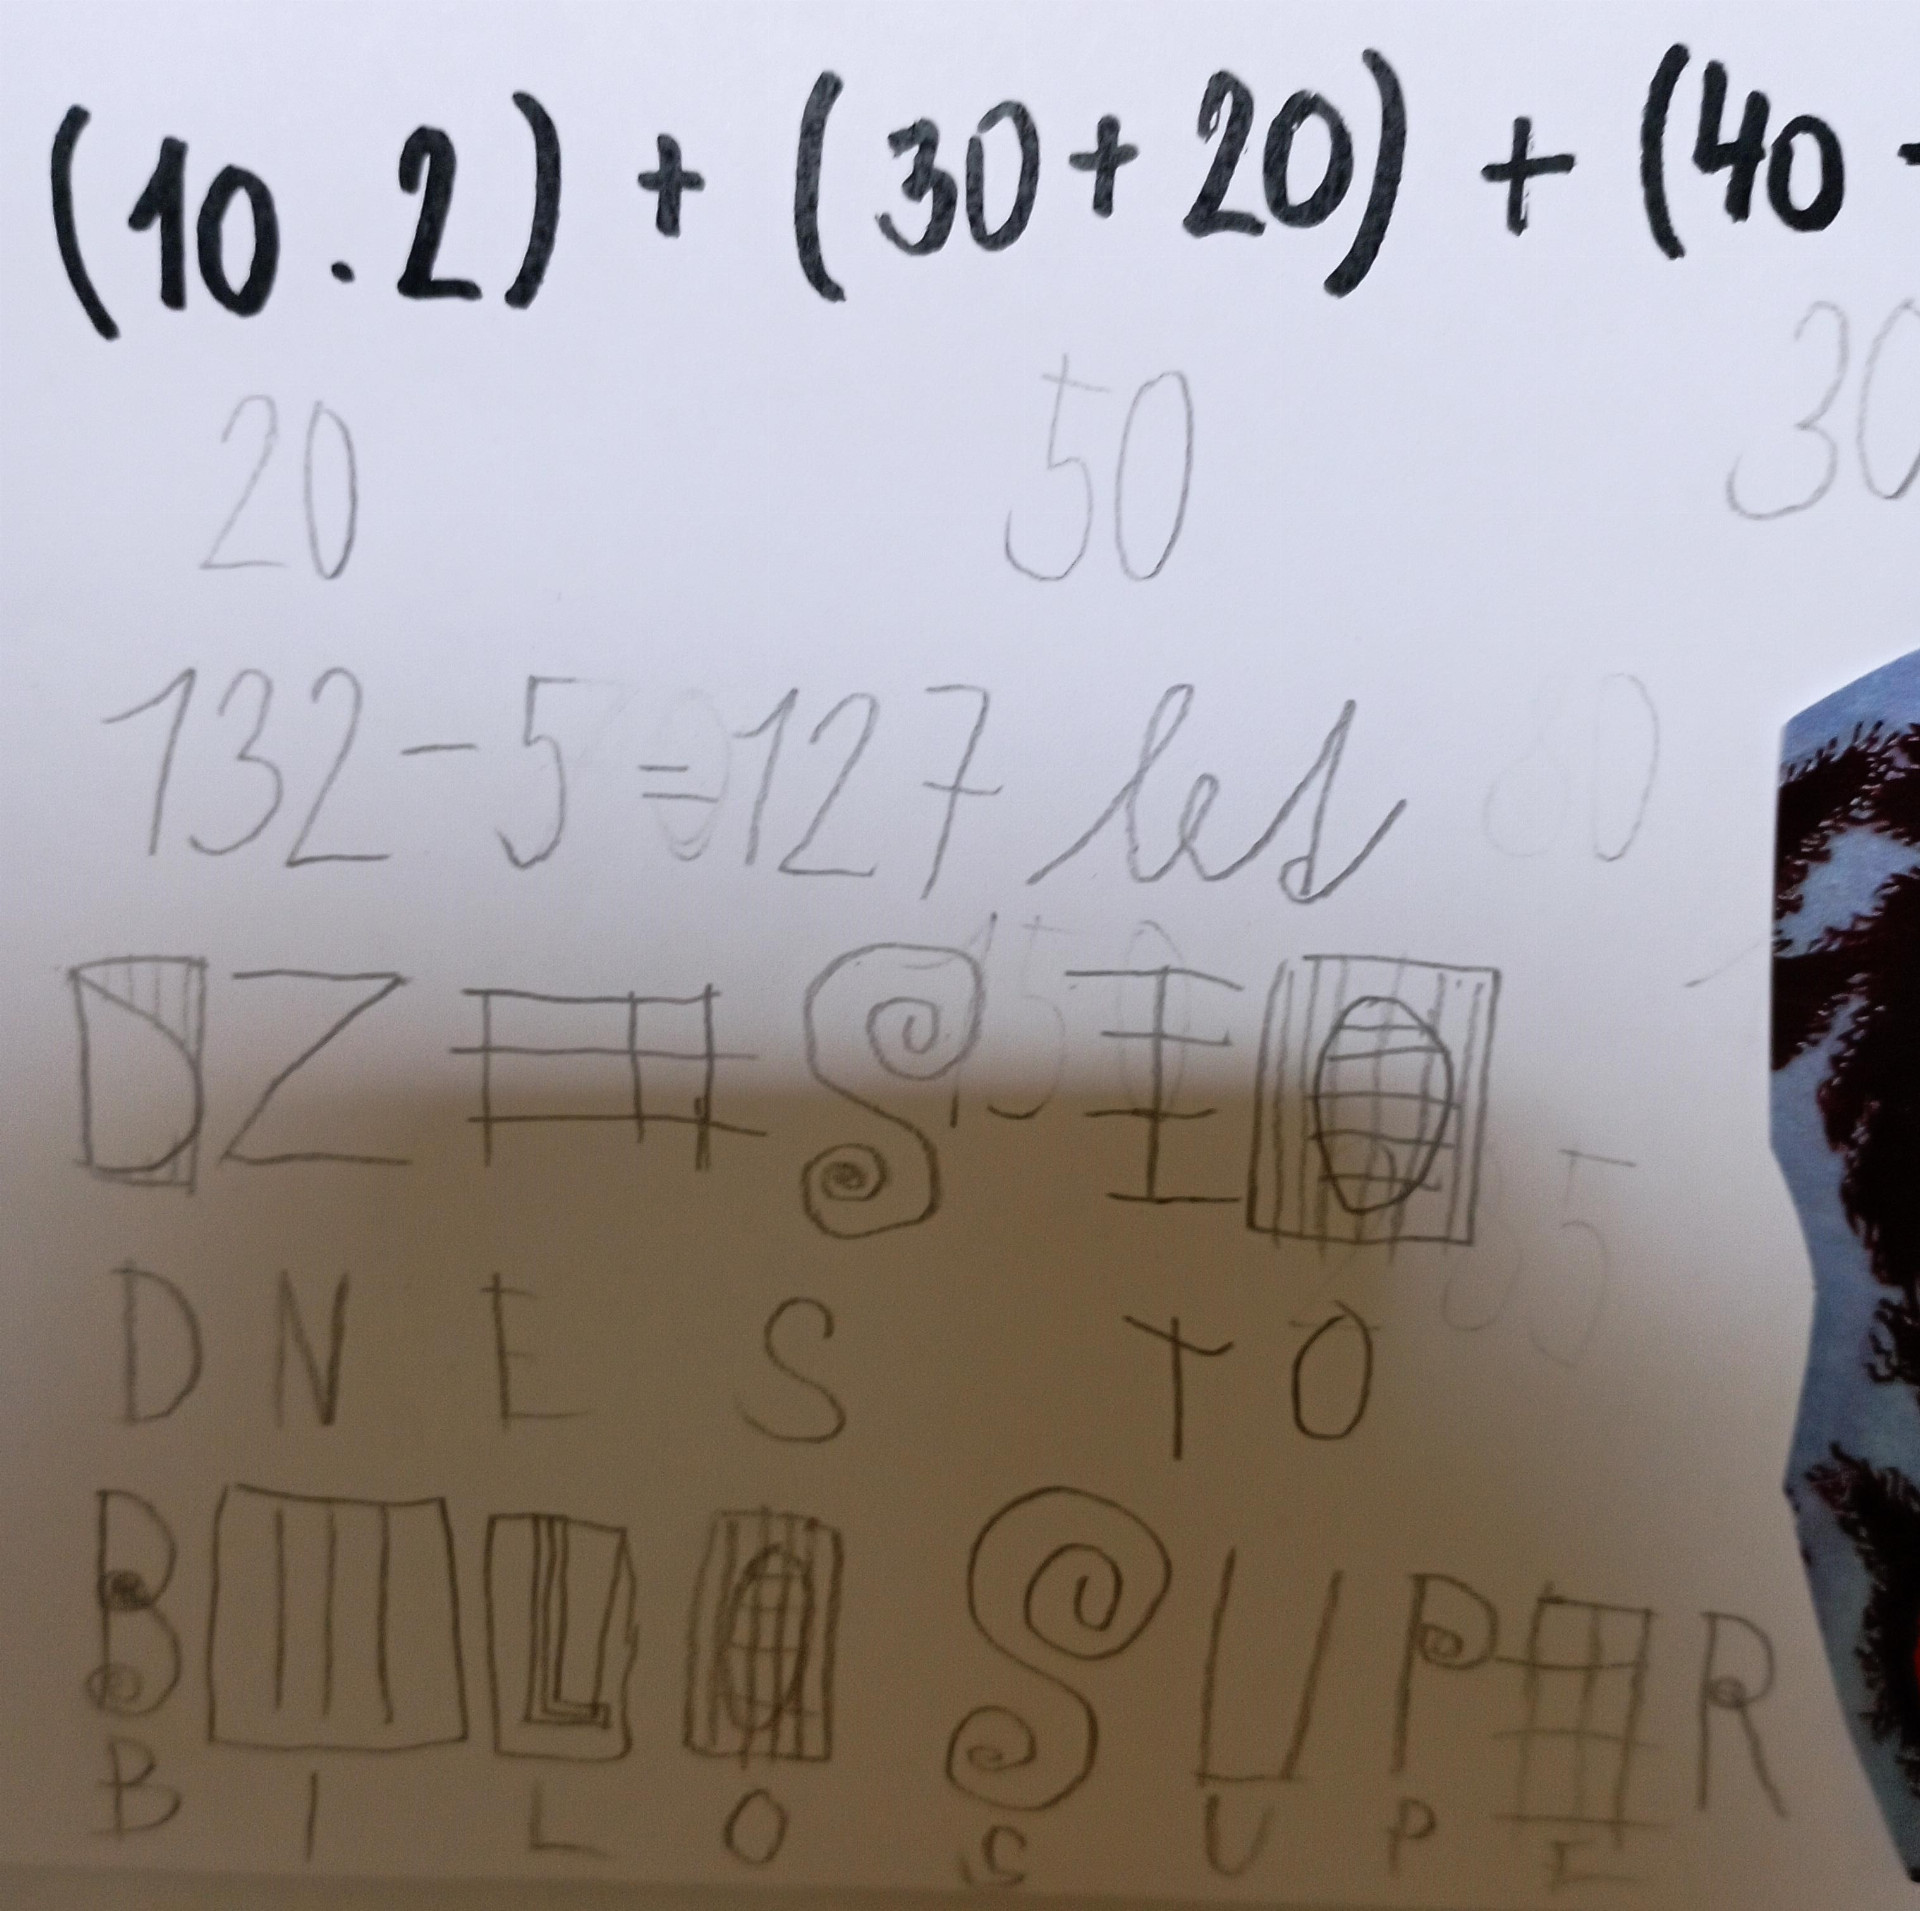 (10 . 2) + (30 + 20) + (40 -
20 50 30
132 - 5 = 127 let
DNES TO
DNES TO
BILO SUPER
BILO SUPE